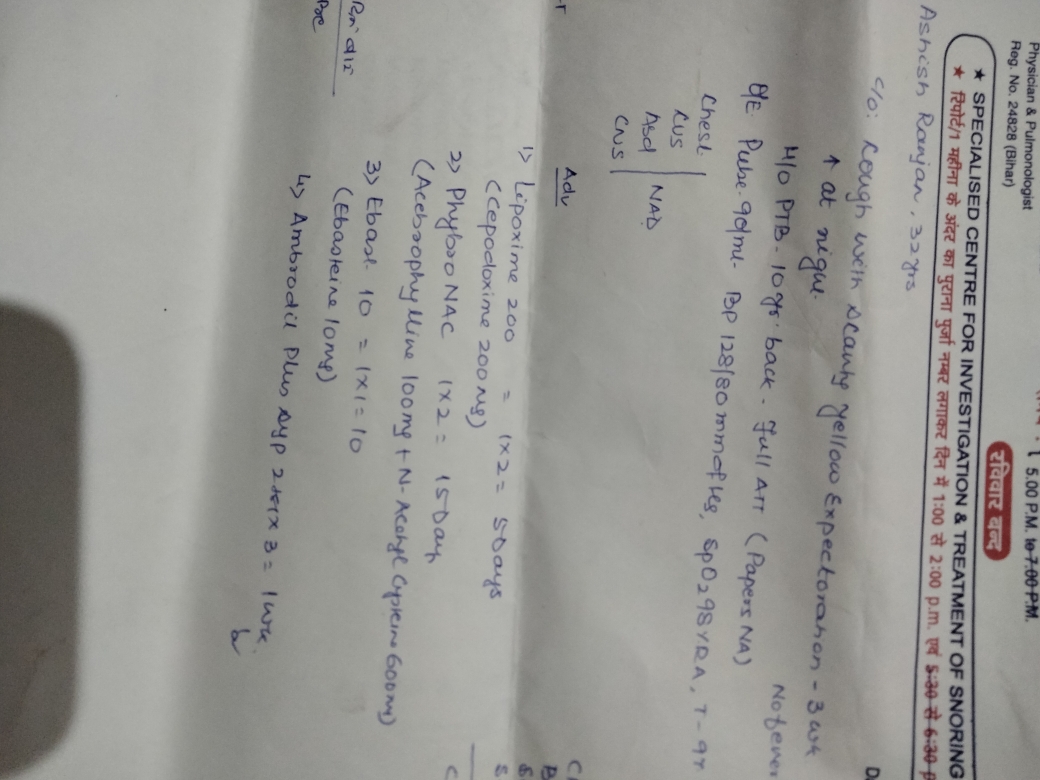 Physician & Pulmonologist
Reg. No. 24828 (Bihar)
5.00 P.M. to 7.00 P.M.
रविवार बन्द
★ SPECIALISED CENTRE FOR INVESTIGATION & TREATMENT OF SNORING
★ रिपोर्ट/1 महीना के अंदर का पुराना पुर्जा नम्बर लगाकर दिन में 1:00 से 2:00 p.m. एवं 5:30 से 6:30
Ashish Ranjan, 32 yrs
C/o: Cough with scanty yellow Expectoration - 3 wk
↑ at night. No fever
H/O PTB - 10 yrs. back - Full ATT (Papers NA)
O/E Pulse- 90/mt- BP 128/80 mmofHg, SpO2 98% RA, T-
Chest
CVS
Abd NAD
CNS
Adv
1) Cepoxime 200 = 1x2 = 5 Days
(Cepodoxime 200mg)
2) Phybro NAC 1x2 = 15 Days
(Acebrophylline 100mg + N-Acetyl Cysteine 600mg)
3) Ebast 10 = 1x1 = 10
(Ebasteine 10mg)
4) Ambrodil Plus syp 2 tsf x 3 = 1 wk